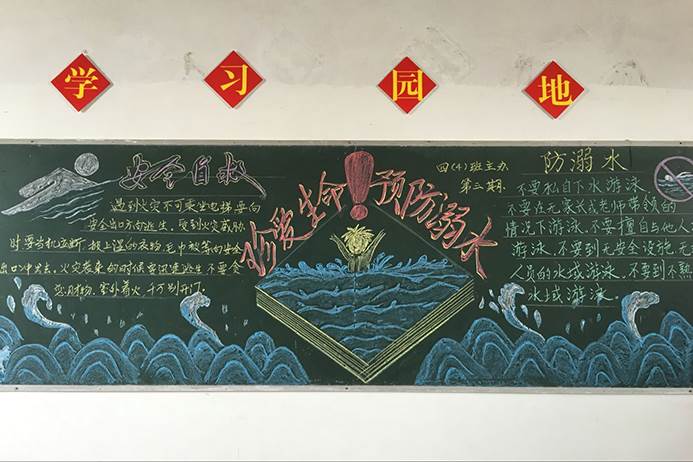 学习园地
安全自救
遇到火灾不可乘坐电梯要向
安全出口方向逃生,受到火灾威胁
时要当机立断披上湿的衣物毛巾被等向安全
出口冲出去,火灾袭来的时候要迅速逃生不要贪
恋财物,室外着火,千万别开门。
珍爱生命!预防溺水
四(4)班主办
第二期
防溺水
不要私自下水游泳
不要在无家长或老师带领的
情况下游泳、不要擅自与他人
游泳、不要到无安全设施、无
人员的水域游泳、不要到不熟
水域游泳